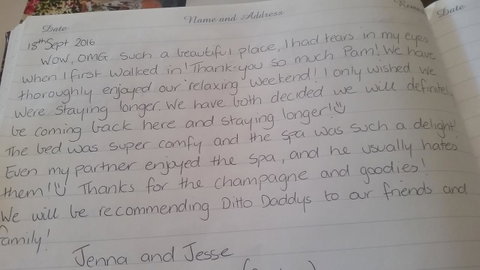 Date Name and Address Date
18th Sept 2016
WOW, OMG such a beautiful place, I had tears in my eyes
when I first walked in! Thank-you so much Pam! We have
thoroughly enjoyed our relaxing weekend! I only wished we
were staying longer. We have both decided we will
be coming back here and staying longer!
The bed was super comfy and the spa was such a delight!
Even my partner enjoyed the spa, and he usually hates
them! Thanks for the champagne and goodies!
We will be recommending Ditto Daddys to our friends and
family!
Jenna and Jesse